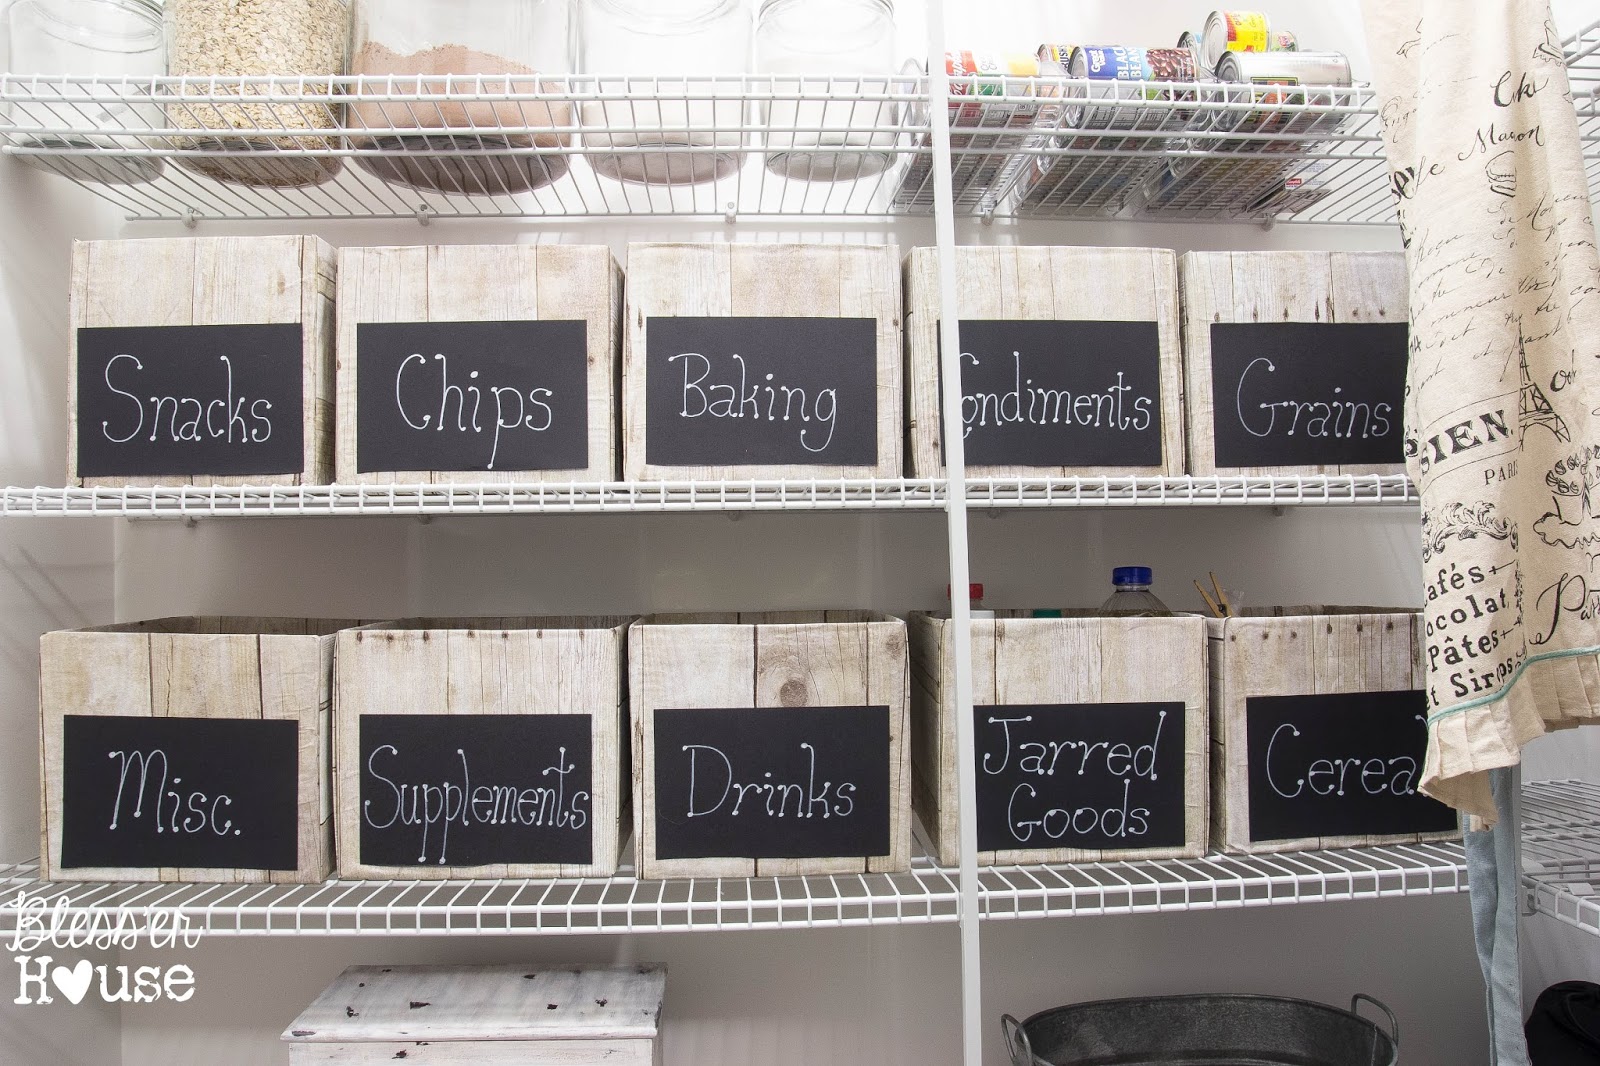 BLACK
BEANS
Snacks
Chips
Baking
ondiments
Grains
Misc.
Supplements
Drinks
Jarred
Goods
Cereal
Mason
SIEN
PARI
afés
ocolat
Pâtes
t Sirops
Bless'er
House